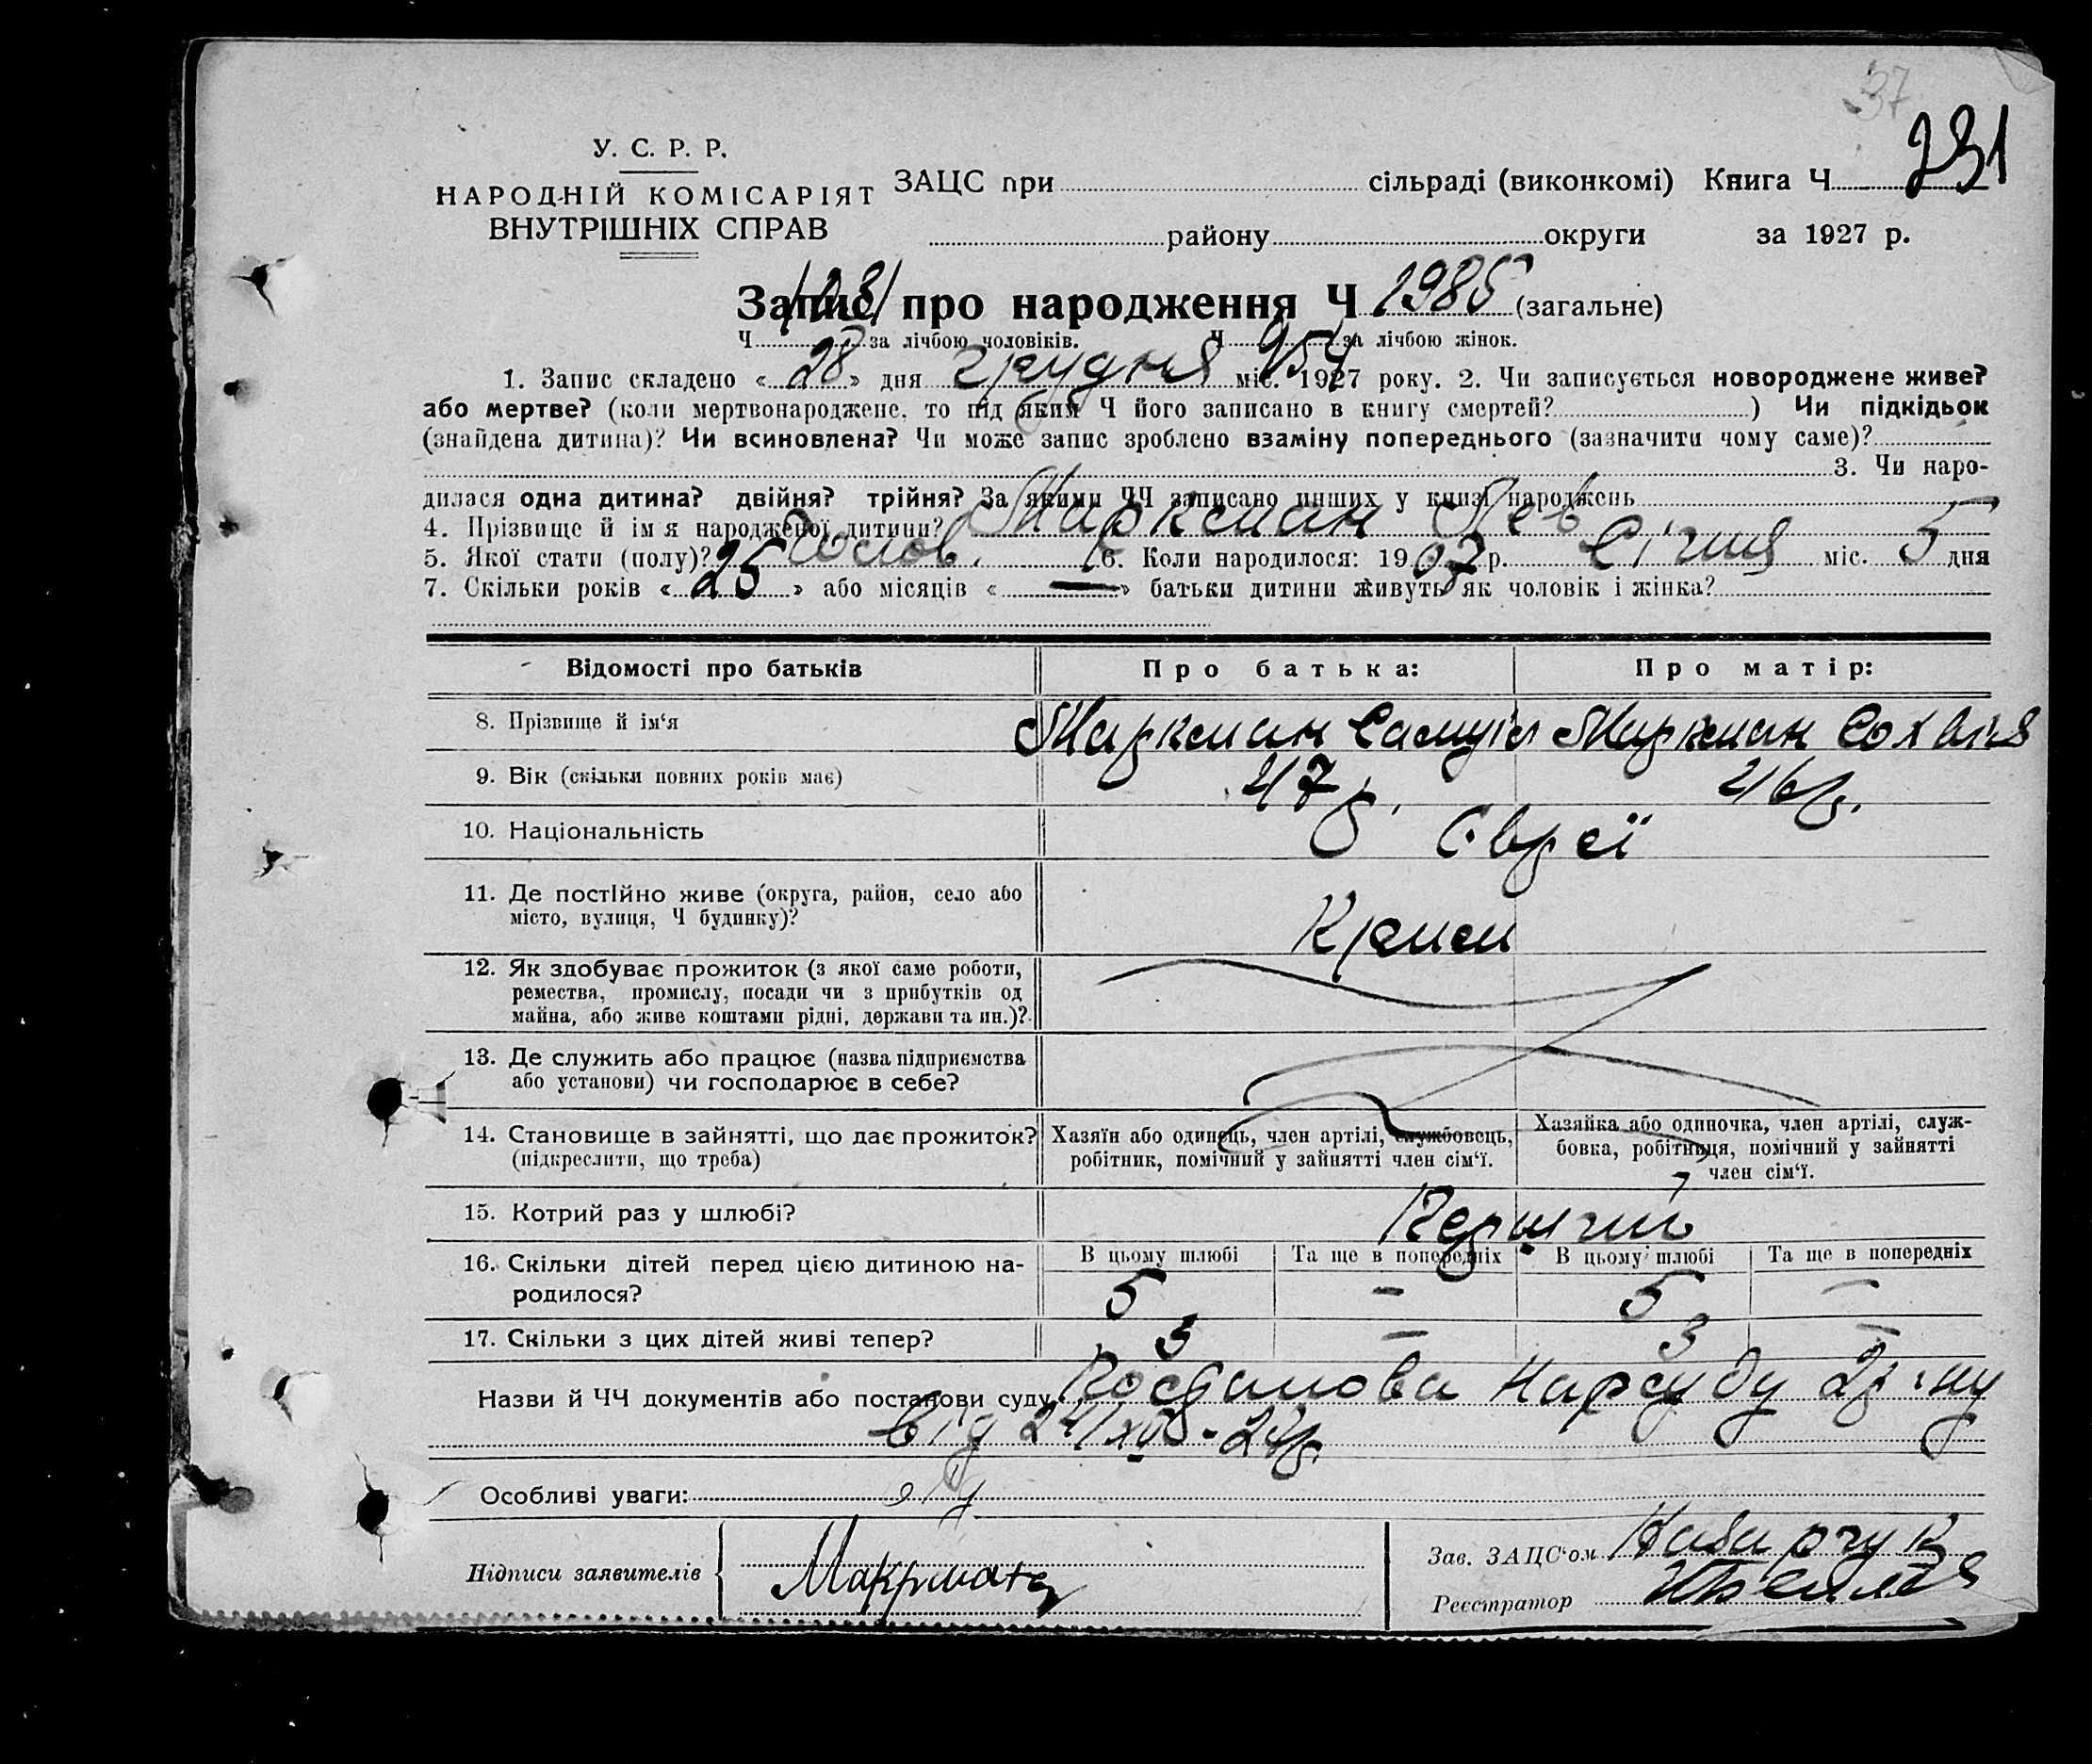 37
231
У. С. Р. Р.
НАРОДНІЙ КОМІСАРІЯТ
ВНУТРІШНІХ СПРАВ
ЗАЦС при сільраді (виконкомі) Книга Ч
району округи за 1927 р.
Запис про народження Ч 1985 (загальне)
Ч 1031 за лічбою чоловіків. Ч 954 за лічбою жінок.
1. Запис складено « 28 » дня грудня міс. 1927 року. 2. Чи записується новороджене живе?
або мертве? (коли мертвонароджене, то під яким Ч його записано в книгу смертей? ) Чи підкідьок
(знайдена дитина)? Чи всиновлена? Чи може запис зроблено взаміну попереднього (зазначити чому саме)?
3. Чи наро-
дилася одна дитина? двійня? трійня? За якими ЧЧ записано инших у книзі народжень
4. Прізвище й ім я народженої дитини? Маркман Лев
5. Якої стати (полу)? Чолов. 6. Коли народилося: 1907 р. Січня міс. 5 дня
7. Скільки років « 25 » або місяців « — » батьки дитини живуть як чоловік і жінка?
Відомості про батьків Про батька: Про матір:
8. Прізвище й ім‘я Маркман Самуїл Маркман
9. Вік (скільки повних років має) 47 р. 46 р.
10. Національність Євреї
11. Де постійно живе (округа, район, село або
місто, вулиця, Ч будинку)?
12. Як здобуває прожиток (з якої саме роботи,
ремества, промислу, посади чи з прибутків од
майна, або живе коштами рідні, держави та ин.)?
13. Де служить або працює (назва підприємства
або установи) чи господарює в себе?
14. Становище в зайнятті, що дає прожиток?
(підкреслити, що треба)
Хазяїн або одинець, член артілі, службовець,
робітник, помічний у зайнятті член сім‘ї.
Хазяйка або одиночка, член артілі, служ-
бовка, робітниця, помічний у зайнятті
член сім‘ї.
15. Котрий раз у шлюбі? Перший
16. Скільки дітей перед цією дитиною на-
родилося?
В цьому шлюбі Та ще в попередніх В цьому шлюбі Та ще в попередніх
5 — 5 —
17. Скільки з цих дітей живі тепер? 3 — 3 —
Назви й ЧЧ документів або постанови суду Постанова Нарсуду
від
Особливі уваги:
Підписи заявителів
Зав. ЗАЦС‘ом
Реєстратор